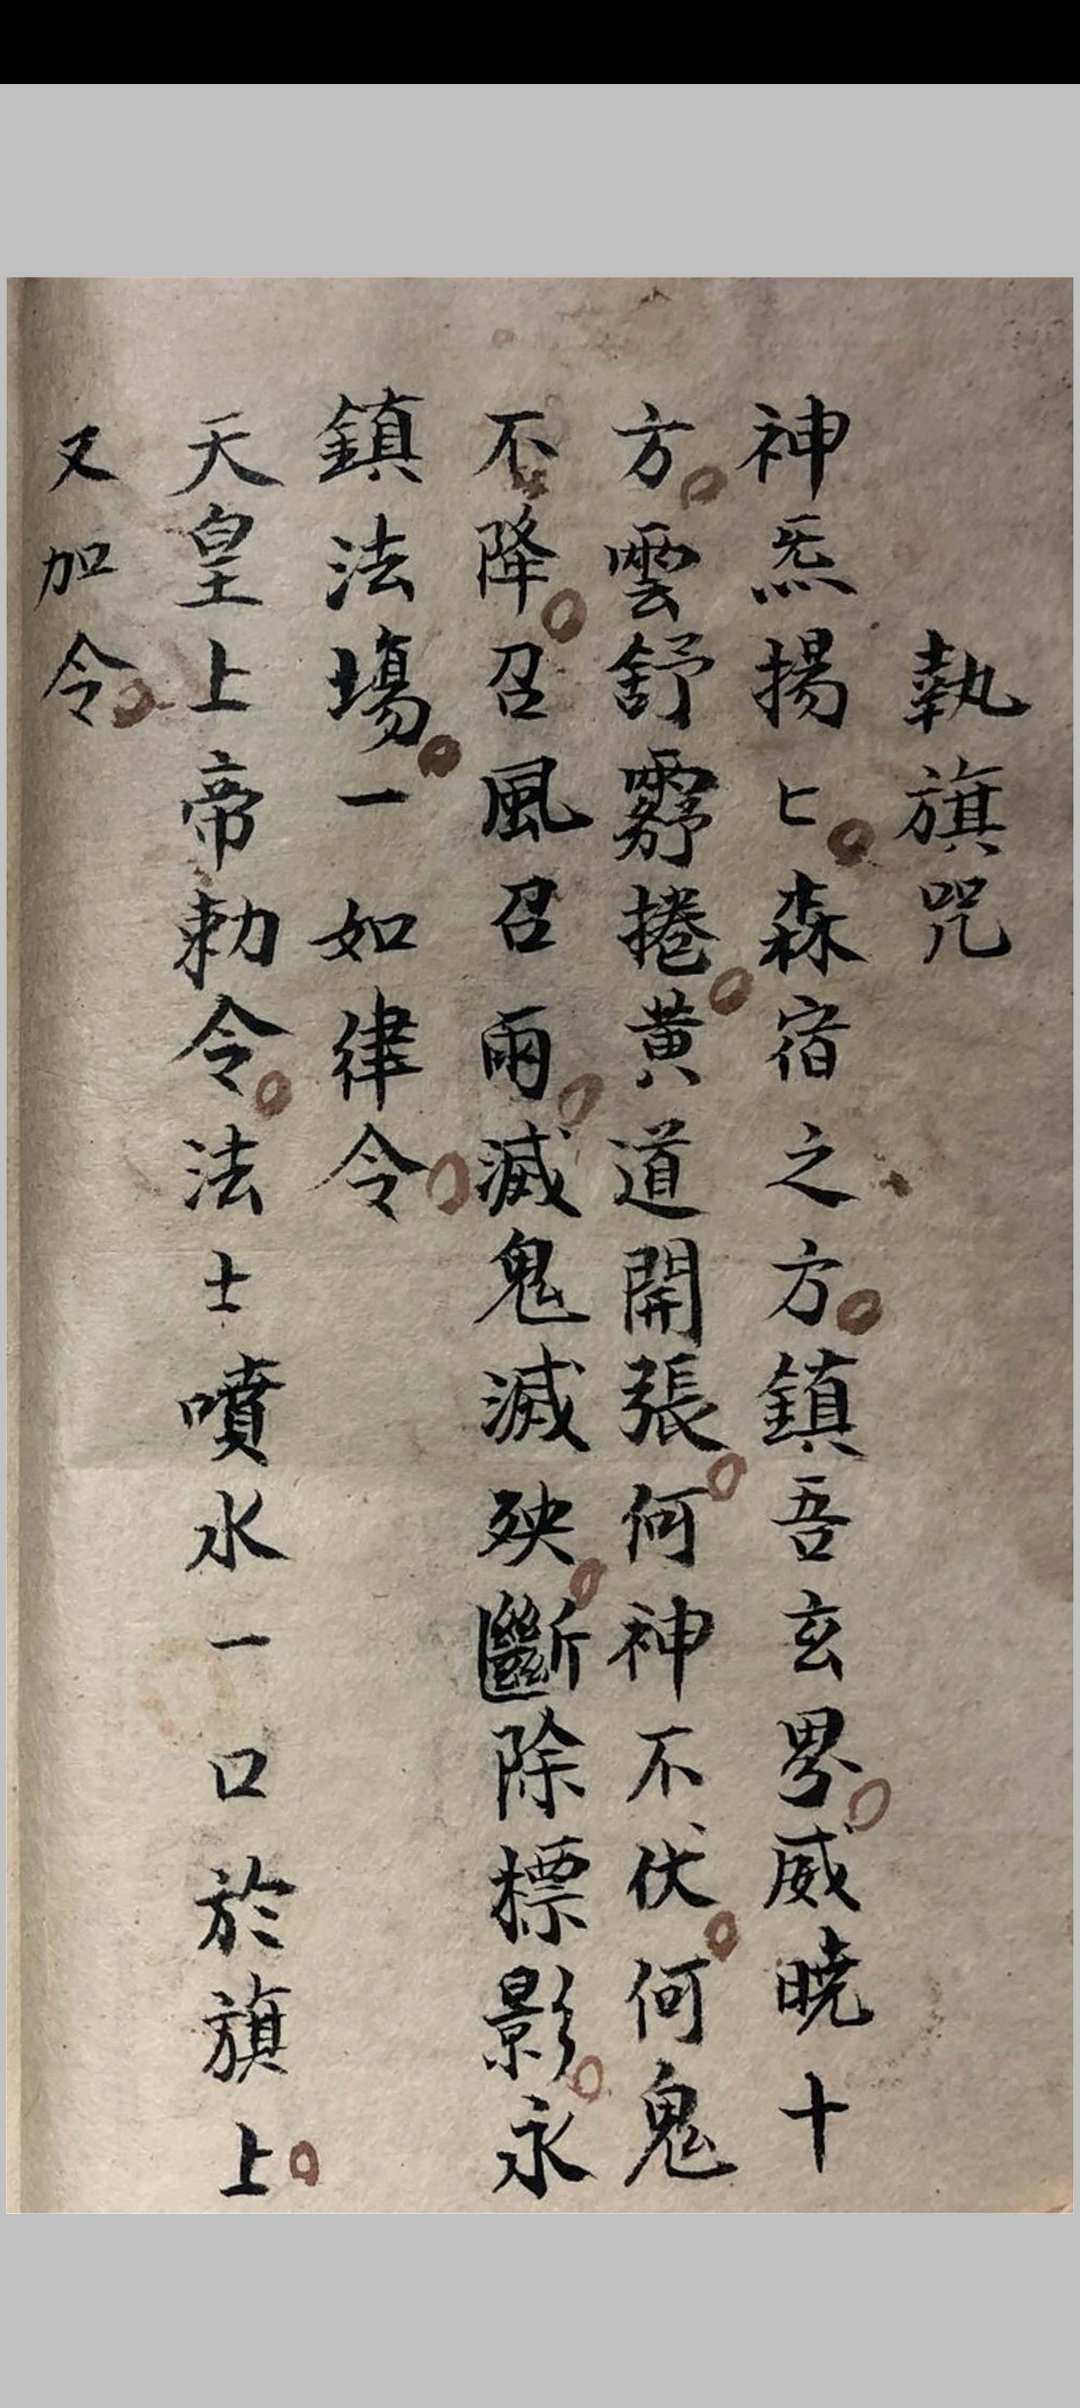 執旗咒
神炁揚匕森宿之方鎮吾玄界威曉十
方雲舒霧捲黃道開張何神不伏何鬼
不降召風召雨滅鬼滅殃斷除標影永
鎮法場一如律令
天皇上帝勅令法士噴水一口於旗上
又加令